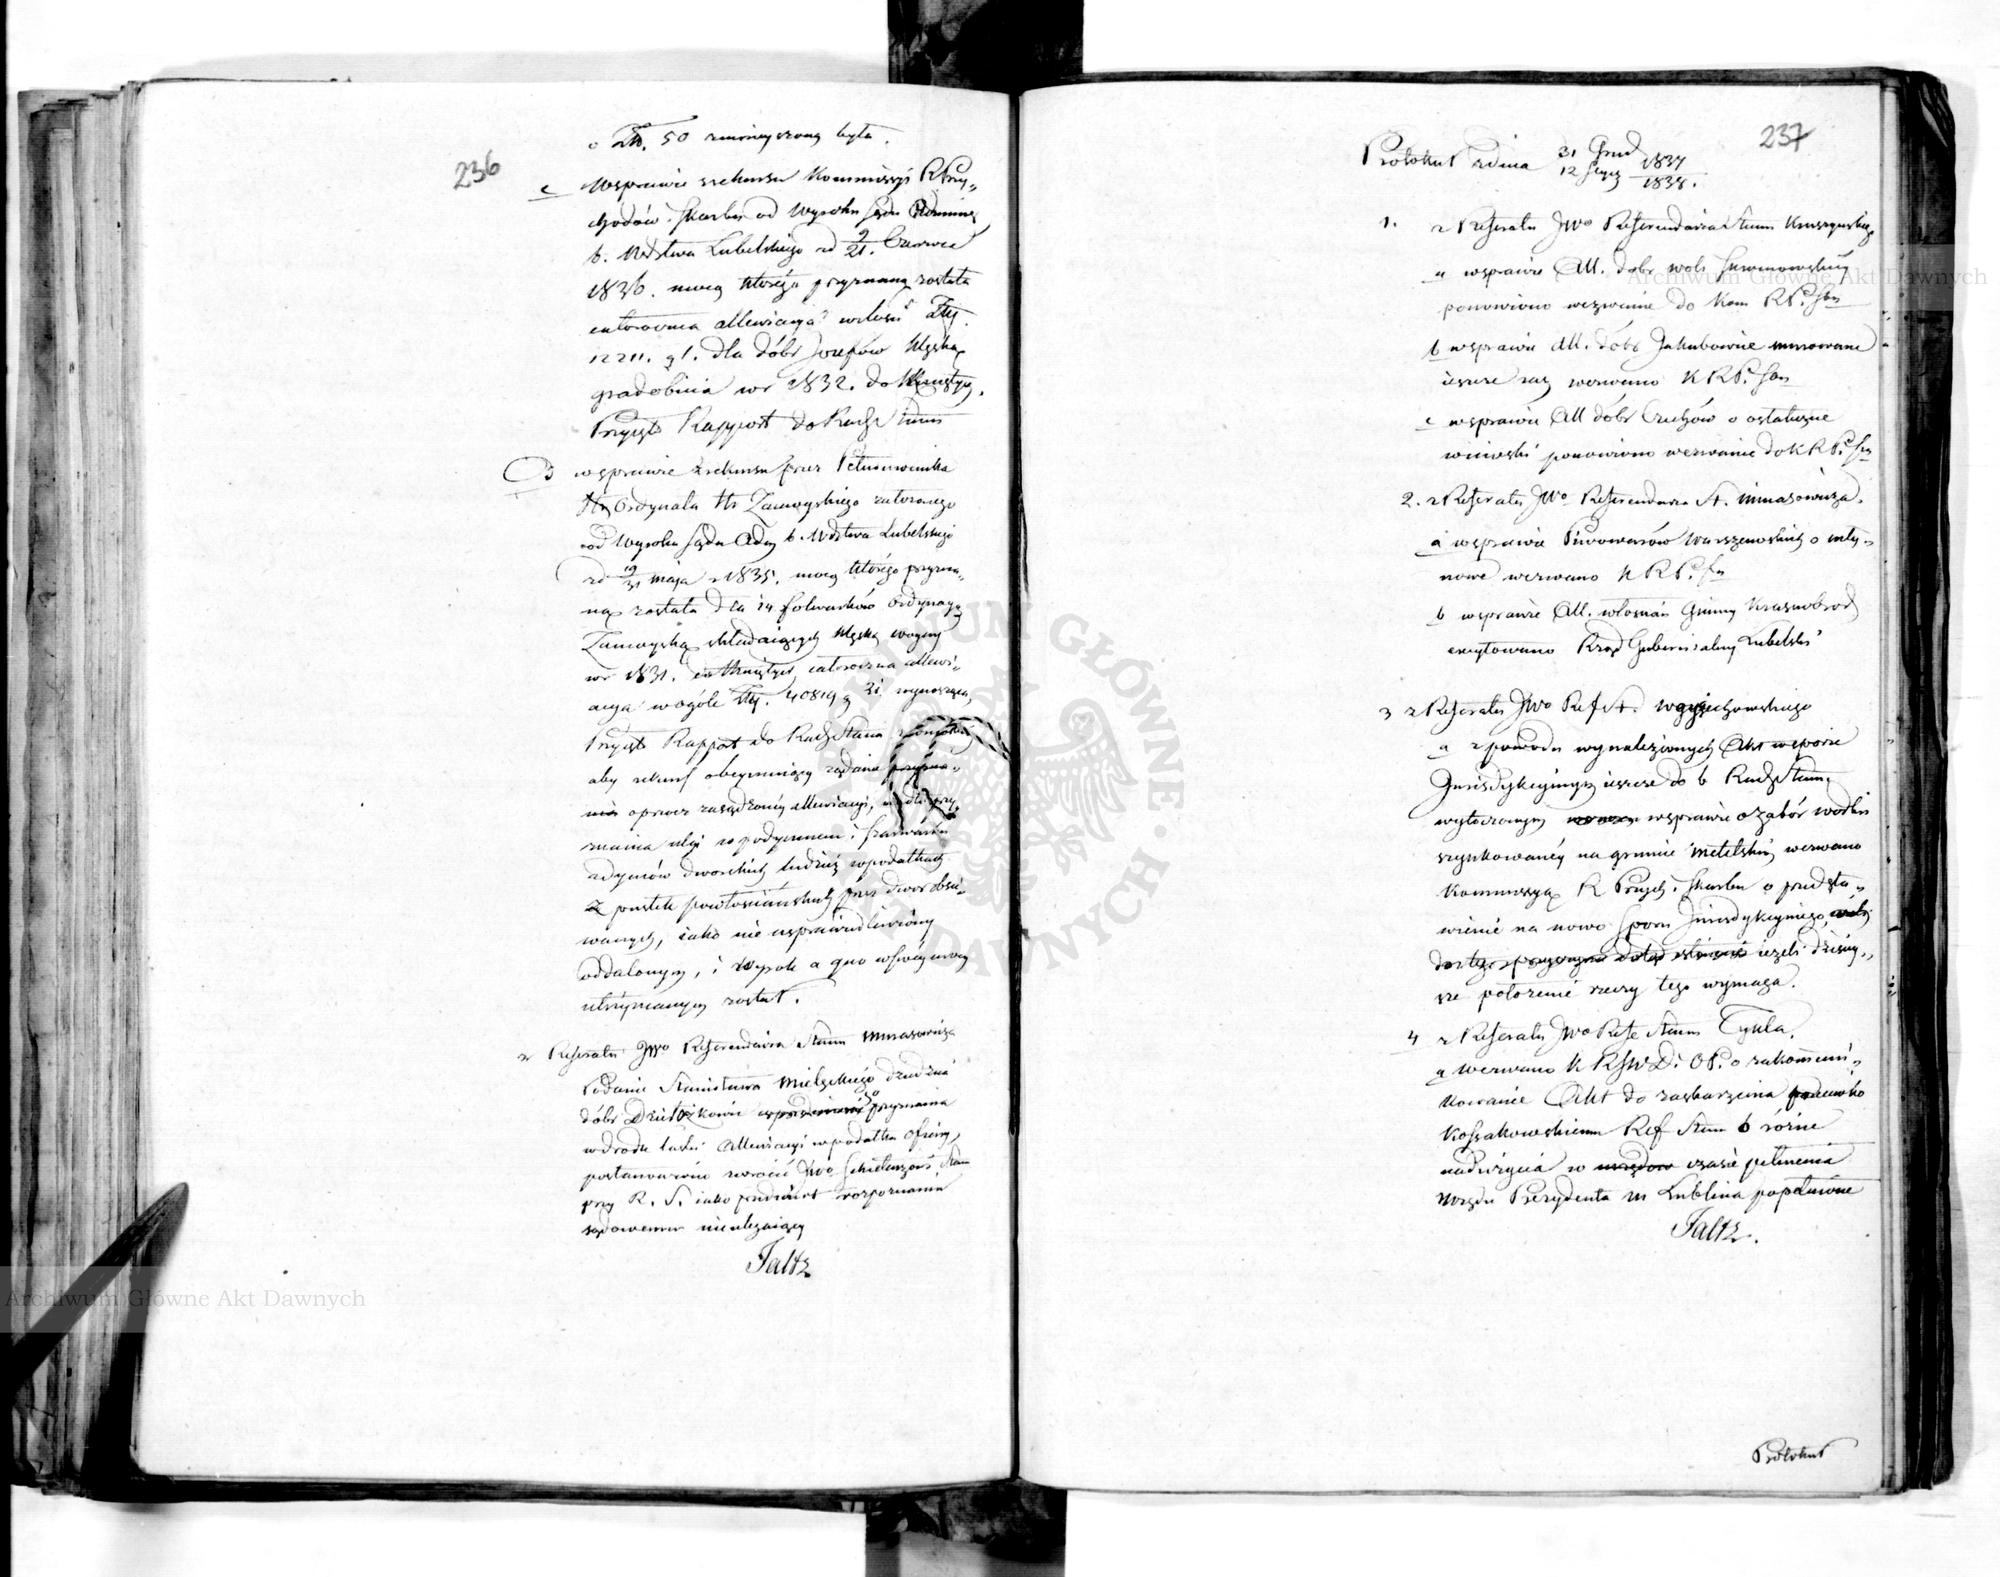 236
o Złt. 50 zmnieyszoną była.
c Wsprawie zrekursu Kommissyi R Przy-
chodów i Skarbu od Wyroku Sądu Administ.
b. Wdztwa Lubelskiego zd 9/21. Czerwca
1836. mocą którego przyznaną została
całoroczna allewiacya w ilości Złt.
12211. g 1. dla dóbr Jozefów klęską
gradobicia wr 1832. dotkniętych.
Przyjęto Rapport do Rady Stanu
B wsprawie zrekursu przez Pełnomocnika
Hr. Ordynata Hr Zamoyskiego założonego
od Wyroku Sądu Adm b. Wdztwa Lubelskiego
zd 19/31 Maja r 1835. mocą którego przyzna-
na została dla 14 folwarków Ordynacyą
Zamoyską składaiących klęską woyny
wr 1831. dotkniętych całoroczna allewi-
acya wogóle Złt. 40819 g 21. wynosząca,
Przyjęto Rapport do Rady Stanu
aby rekurs obeymuiący żądanie
oprócz zasądzoney allewiacyi,
znania ulgi w podymnem i szarwarku
zdymów dworskich tudzież wpodatkach
z pustek powłosciańskich przez dwór obsie-
wanych, iako nie usprawiedliwiony
oddalonym, i Wyrok a quo w swey mocy
utrzymanym został.
z Referatu JWo Referendarza Stanu Minasowicza
Podanie Stanisława Mielęckiego dziedzica
dóbr przyznania
wdrodze łaski allewiacyi wpodatku ofiary,
postanowiono zwrócić JWo Sekretarzowi Stanu
przy R. S. iako przedmiot rozpoznaniu
sądowemu nieulegaiący
Faltz
237
Protokuł zdnia 31 Grud 1837
12 Stycz 1838.
1. z Referatu JWo Referendarza Stanu Kruszyńskiego
a wsprawie All. dobr woli
ponowiono wezwanie do Kom RP. i Sbu
b wsprawie All. dóbr Jakubowice murowane
ieszcze raz wezwano K R P. i Sbu
c wsprawie All dóbr Czuchów o ostateczne
wnioski ponowiono wezwanie do K R P. i Sbu
2. z Referatu JWo Referendarza St. Minasowicza.
a wsprawie Piwowarów Warszawskich o mły-
nowe wezwano K R P. i Sbu
b wsprawie All. włoscian Gminy Krasnobrod
excytowano Rząd Gubernialny Lubelski
3 z Referatu JWo Ref St. Woyciechowskiego
a z powodu wynalezionych Akt wsporze
Jurisdykcyinym ieszcze do b Rady Stanu
wytoczonym wsprawie o zabór wódki
szynkowanéy na gruncie wezwano
Kommissyą R Przych. i Skarbu o przedsta-
wienie na nowo sporu Jurisdykcyinego,
ieżeli dzisiey-
sze położenie rzeczy tego wymaga.
4 z Referatu JWo Refe Stanu Tykla.
a wezwano K R SW. D. i OP. o zakommuni-
kowanie Akt do zaskarżenia przeciwko
Kossakowskiemu Ref Stanu o różne
nadużycia w czasie pełnienia
Urzędu Prezydenta M Lublina popełnione
Faltz.
Protokuł